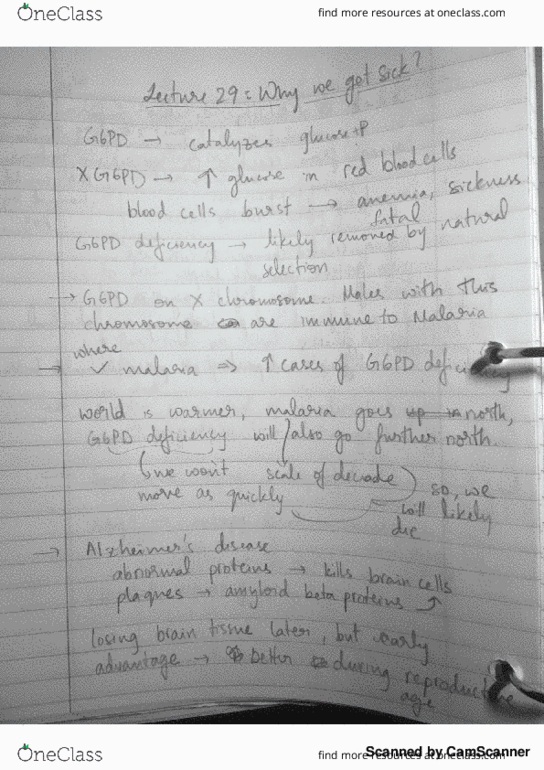 OneClass
find more resources at oneclass.com
Lecture 29: Why we got sick?
G6PD → catalyzes glucose+P
X G6PD → ↑ glucose in red blood cells
blood cells burst → anemia, sickness
fatal
G6PD deficiency → likely removed by natural
selection
→ G6PD on X chromosome. Males with this
chromosome are immune to Malaria
where
→ ✓ malaria ⇒ ↑ cases of G6PD
world is warmer, malaria goes up north,
G6PD deficiency will also go further north.
we won't scale of decade
move as quickly
so, we
will likely
die
→ Alzheimer's disease
abnormal proteins → kills brain cells
plaques → amyloid beta proteins ↑
losing brain tissue later, but early
advantage → better during
age
OneClass
find more resources at oneclass.com
Scanned by CamScanner